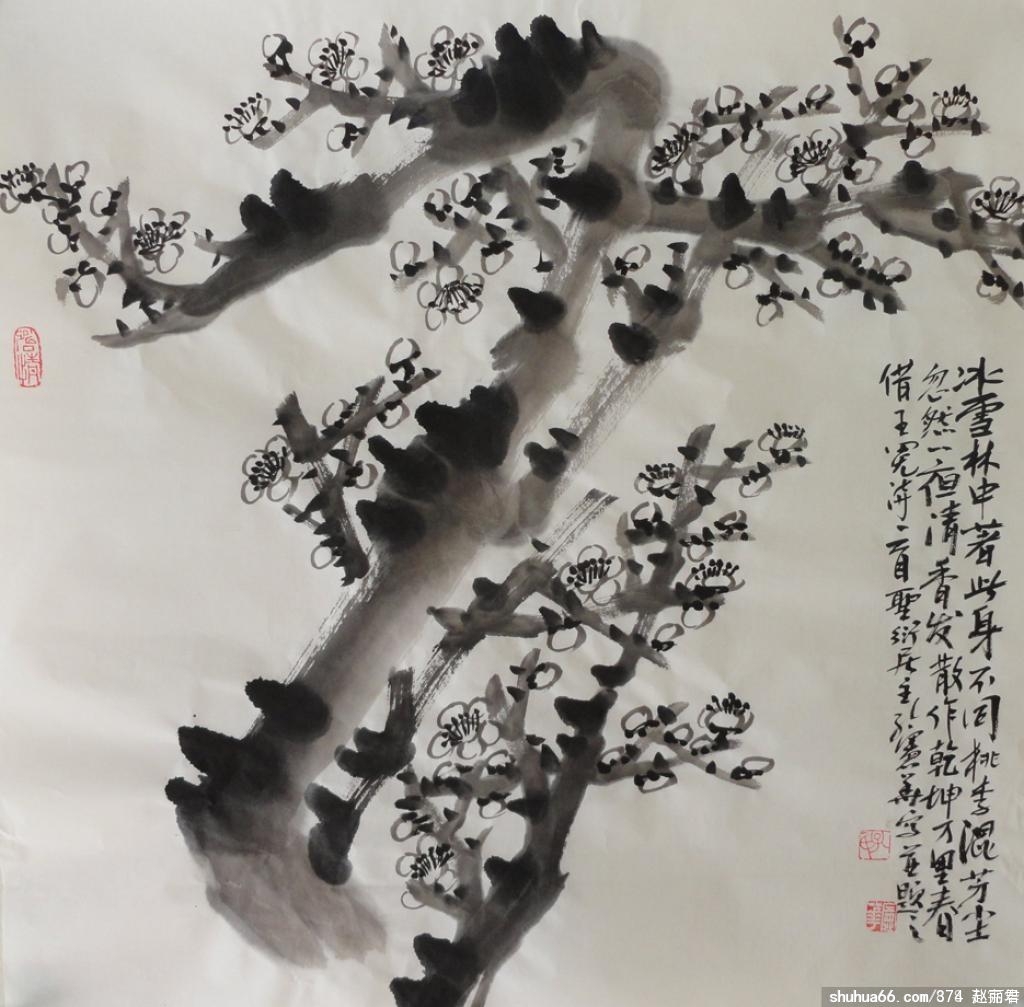 冰雪林中著此身不同桃李混芳尘
忽然一夜清香发散作乾坤万里春
借王冕诗一首聖衍居主弘憲華写並题之
shuhua66.com/874 赵丽君